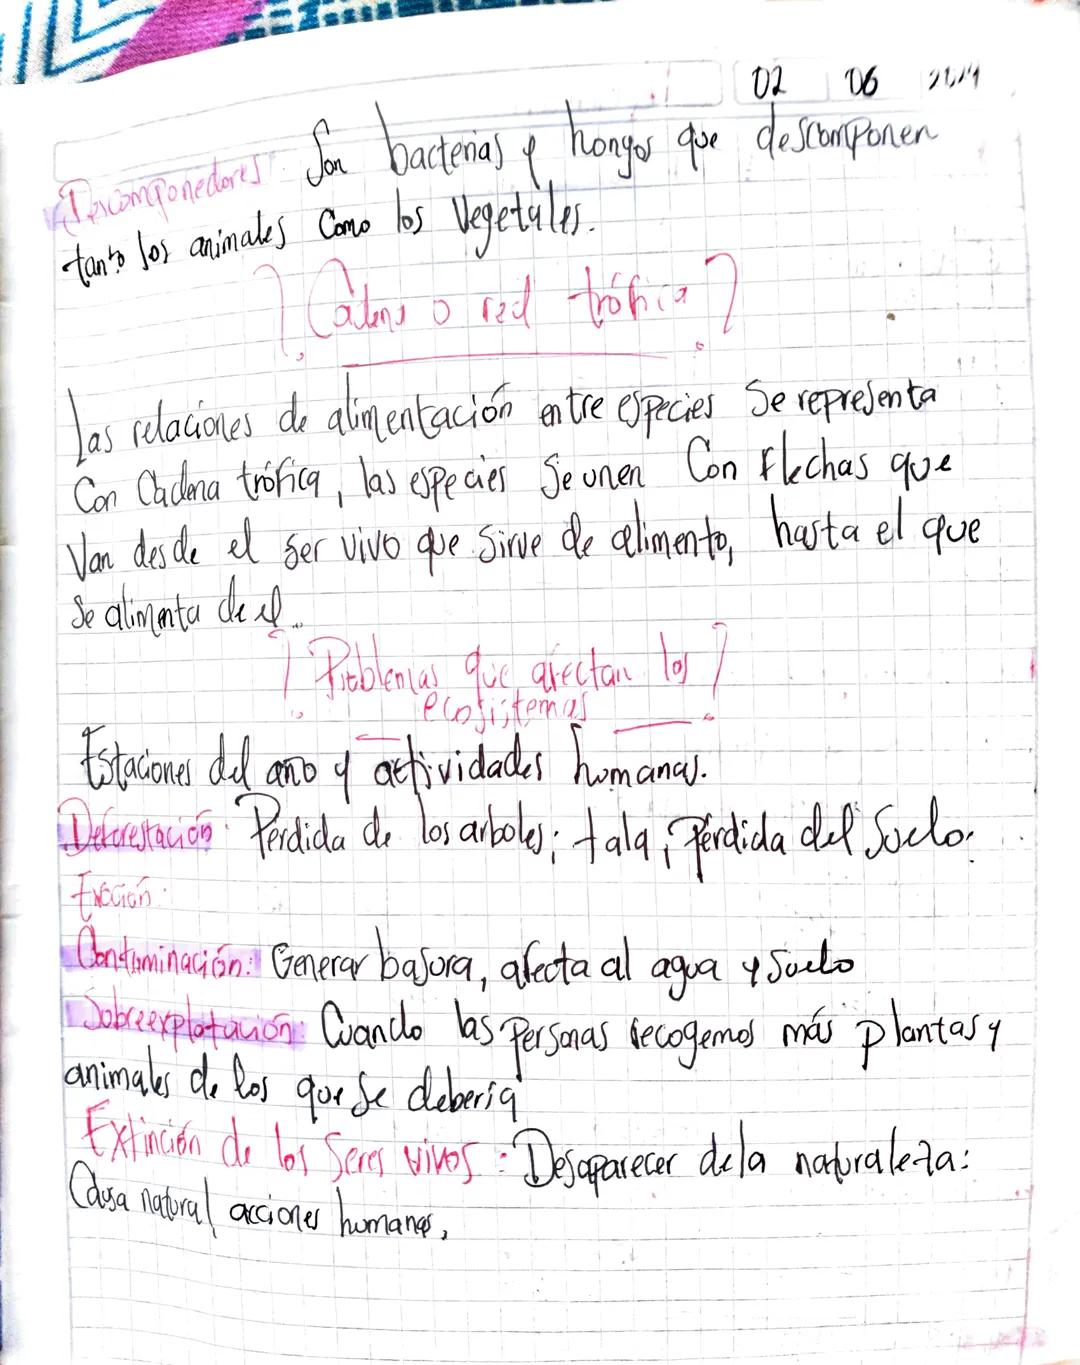 02 06
Descomponedores: Son bacterias y hongos que descomponen
tanto los animales como los Vegetales.
Cadena o red trófica
Las relaciones de alimentación entre especies Se representa
Con Cadena trófica, las especies Se unen Con flechas que
Van desde el ser vivo que Sirve de alimento, hasta el que
Se alimenta de el..
Problemas que afectan los
ecosistemas
Estaciones del año y actividades humanas.
Deforestación: Pérdida de los arboles; tala; Pérdida del Suelo:
Contaminación: Generar basura, afecta al agua y Suelo
Sobreexplotación: Cuando las Personas recogemos más plantas y
animales de los que Se debería
Extinción de los Seres vivos: Desaparecer de la naturaleza:
Causa natural, acciones humanas,